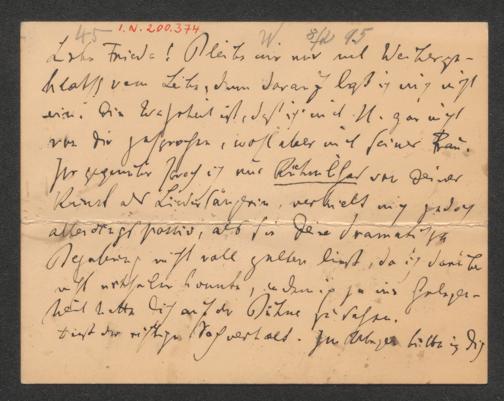 45 I.N. 200.374 W 8/2 95
Liebe Frieda! Bleibe mir nur mit Weiberge-
klatsch vom Leibe, denn darauf lasse ich mich nicht
ein. Die Wahrheit ist, daß ich mit H. gar nicht
von dir gesprochen, wohl aber mit seiner Frau.
Ihr gegenüber sprach ich nur Rühmliches von deiner
Kunst als Liedersängerin, verhielt mich jedoch
allerdings passiv, als sie deine dramatische
Begabung nicht voll gelten ließ, da ich darüber
nicht urtheilen konnte, indem ich ja nie Gelegen-
heit hatte dich auf der Bühne zu sehen.
Dieß der richtige Sachverhalt. Im Übrigen bitte ich dich